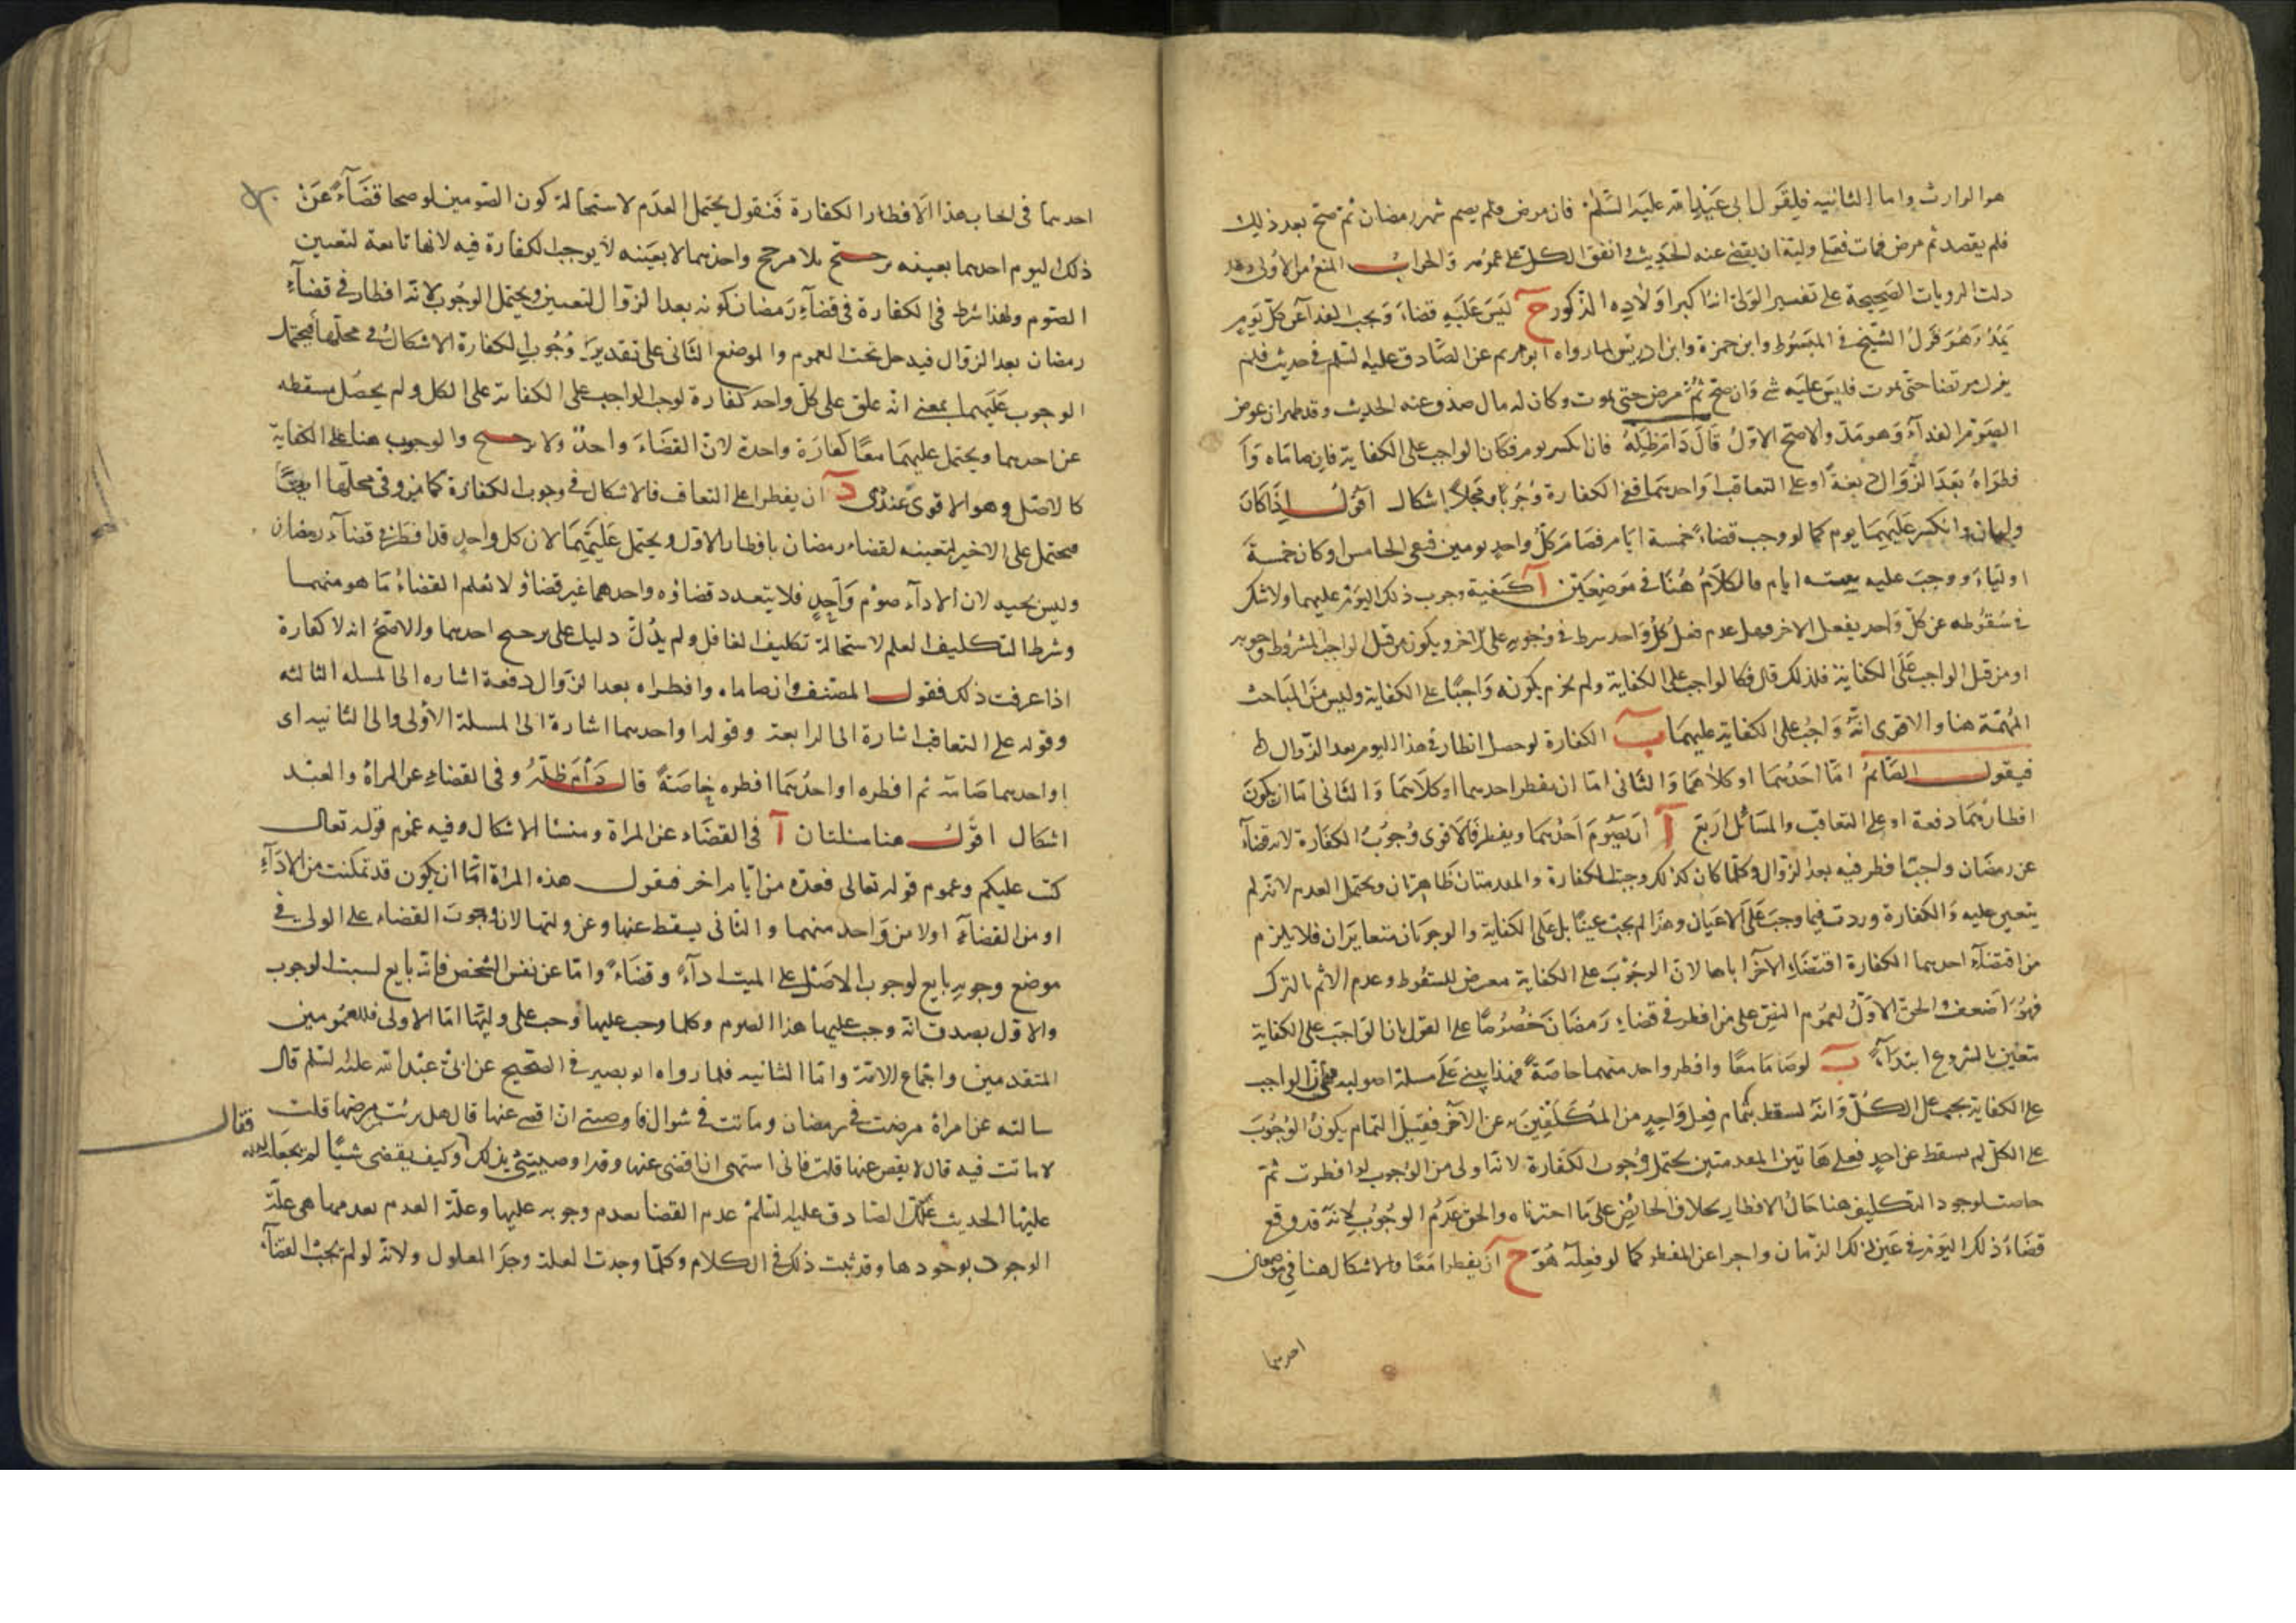 هو الوارث واما الثانيه فلقول ابى عبدالله عليه السلم فان مرض فلم يصم شهر رمضان ثم صح بعد ذلك
فلم يقضه ثم مرض فمات فعلى وليه ان يقضى عنه الحديث واتفق الكل على عمومه والجواب المنع من الاولى وقد
دلت الروايات الصحيحة على تفسير الولى انه اكبر اولاده الذكور ح ليس عليه قضاء ويجب الفداء عن كل يوم
بمد وهو قول الشيخ فى المبسوط وابن حمزة وابن ادريس لما رواه ابو مريم عن الصادق عليه السلم فى حديث فلم
يزل مريضا حتى يموت فليس عليه شى وان صح ثم مرض حتى يموت وكان له مال صدق عنه الحديث وقد ظهر ان عوض
الصوم الفداء وهو مد والاصح الاول قال دام ظله فان انكسر يوم فكان الواجب على الكفاية فان صاماه وا
فطراه بعد الزوال دفعة او على التعاقب او احدهما ففى الكفارة وجوبا ومحلا اشكال اقول اذا كان
وليان وانكسر عليهما يوم كما لو وجب قضاء خمسة ايام فصام كل واحد يومين فبقى الخامس او كان خمسة
اولياء ووجب عليه ستة ايام فالكلام هنا فى موضعين آ كيفية وجوب ذلك اليوم عليهما ولا شك
فى سقوطه عن كل واحد بفعل الاخر وهل عدم فعل كل واحد شرط فى وجوبه على الاخر ويكون من قبل الواجب المشروط وجوبه
او من قبل الواجب على الكفاية فلذلك قال فكالواجب على الكفاية ولم يجزم بكونه واجبا على الكفاية وليس من المباحث
المهمة هنا والاقوى انه واجب على الكفاية عليهما ب الكفارة لو حصل افطار فى هذا اليوم بعد الزوال
فيقول الصائم اما احدهما او كلاهما والثانى اما ان يفطر احدهما او كلاهما والثانى اما ان يكون
افطارهما دفعة او على التعاقب والمسائل اربع آ ان يصوم احدهما ويفطر فالاقوى وجوب الكفارة لانه قضاء
عن رمضان واجب افطر فيه بعد الزوال وكلما كان كذلك وجبت الكفارة والمقدمتان ظاهرتان ويحتمل العدم لانه لم
يتعين عليه والكفارة وردت فيما وجب على الاعيان وهذا لم يجب عينا بل على الكفاية والوجوبان متغايران فلا يلزم
من اقتضاء احدهما الكفارة اقتضاء الآخر اياها لان الوجوب على الكفاية معرض للسقوط وعدم الاثم بالترك
فهو اضعف والحق الاول لعموم النص على من افطر فى قضاء رمضان خصوصا على القول بان الواجب على الكفاية
يتعين بالشروع ابتداء ب لو صاما معا وافطر واحد منهما خاصة فهذا يبنى على مسلة اصوليه هى ان الواجب
على الكفاية يجب على الكل وانه يسقط بتمام فعل واحد من المكلفين به عن الآخر فقبل التمام يكون الوجوب
على الكل لم يسقط عن احد فعلى هاتين المقدمتين يحتمل وجوب الكفارة لانه اولى من الوجوب لو افطرت ثم
حاضت لوجود التكليف هنا حال الافطار بخلاف الحائض على ما اخترناه والحق عدم الوجوب لانه قد وقع
قضاء ذلك اليوم فى عين ذلك الزمان واجزا عن المفطر كما لو فعله هو ح ان يفطرا معا والاشكال هنا فى موضعان
احدهما
احدهما فى ايجاب هذا الافطار الكفارة فنقول يحتمل العدم لاستحالة كون الصومين لو صحا قضاء عن
ذلك اليوم احدهما بعينه ترجيح بلا مرجح واحدهما لا بعينه لا يوجب الكفارة فيه لانها تابعة لتعيين
الصوم ولهذا شرط فى الكفارة فى قضاء رمضان كونه بعد الزوال لتعيين ويحتمل الوجوب لانه افطار فى قضاء
رمضان بعد الزوال فيدخل تحت العموم والموضع الثانى على تقدير وجوب الكفارة الاشكال فى محلها فيحتمل
الوجوب عليهما بمعنى انه علق على كل واحد كفارة لوجب الواجب على الكفاية على الكل ولم يحصل مسقطه
عن احدهما ويحتمل عليهما معا كفارة واحدة لان القضاء واحد ولا ترجيح والوجوب هنا على الكفاية
كالاصل وهو الاقوى عندى د ان يفطرا على التعاقب فالاشكال فى وجوب الكفارة كما مر وفى محلها ايضا
فيحتمل على الاخير لتعينه لقضاء رمضان بافطار الاول ويحتمل عليهما لان كل واحد قد افطر فى قضاء رمضان
وليس بجيد لان الاداء صوم واحد فلا يتعدد قضاؤه واحدهما غير قضاؤ ولا نعلم القضاء ما هو منهما
وشرط التكليف العلم لاستحالة تكليف الغافل ولم يدل دليل على ترجيح احدهما والاصح انه لا كفارة
اذا عرفت ذلك فقول المصنف وان صاماه وافطراه بعد الزوال دفعة اشاره الى المسله الثالثه
وقوله على التعاقب اشارة الى الرابعة وقوله او احدهما اشارة الى المسلة الاولى والى الثانيه اى
او احدهما صامه ثم افطره او احدهما افطره خاصة قال دام ظله وفى القضاء عن المراة والعبد
اشكال اقول هنا مسئلتان آ فى القضاء عن المراة ومنشا الاشكال وفيه عموم قوله تعالى
كتب عليكم وعموم قوله تعالى فعدة من ايام اخر فنقول هذه المراة اما ان يكون قد تمكنت من الاداء
او من القضاء اولا من واحد منهما والثانى يسقط عنها وعن وليها لان وجوب القضاء على الولى فى
موضع وجوبه تابع لوجوب الاصل على الميت اداء وقضاء واما عن نفس الشخص فانه تابع لسبب الوجوب
والاول يصدق انه وجب عليها هذا الصوم وكلما وجب عليها وجب على وليها اما الاولى فللعمومين
المتقدمين واجماع الامة واما الثانيه فلما رواه ابو بصير فى الصحيح عن ابى عبدالله عليه السلم قال
سالته عن امراة مرضت فى رمضان وماتت فى شوال فاوصتنى ان اقضى عنها قال هل برئت من مرضها قلت
لا ماتت فيه قال لا يقض عنها قلت فانى اشتهى ان اقضى عنها وقد اوصتنى بذلك وكيف يقضى شيئا لم يجعله الله
فقال
عليها الحديث علل الصادق عليه السلم عدم القضا بعدم وجوبه عليها وعلة العدم عدمها هى علة
الوجود بوجودها وقد ثبت ذلك فى الكلام وكلما وجدت العلة وجد المعلول ولانه لو لم يجب القضاء